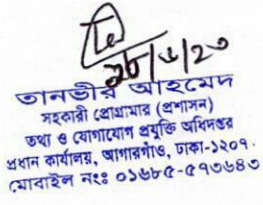 ১৮/৬/২৩
তানভীর আহমেদ
সহকারী প্রোগ্রামার (প্রশাসন)
তথ্য ও যোগাযোগ প্রযুক্তি অধিদপ্তর
প্রধান কার্যালয়, আগারগাঁও, ঢাকা-১২০৭.
মোবাইল নংঃ ০১৬৮৫-৫৭৩৬৪৩